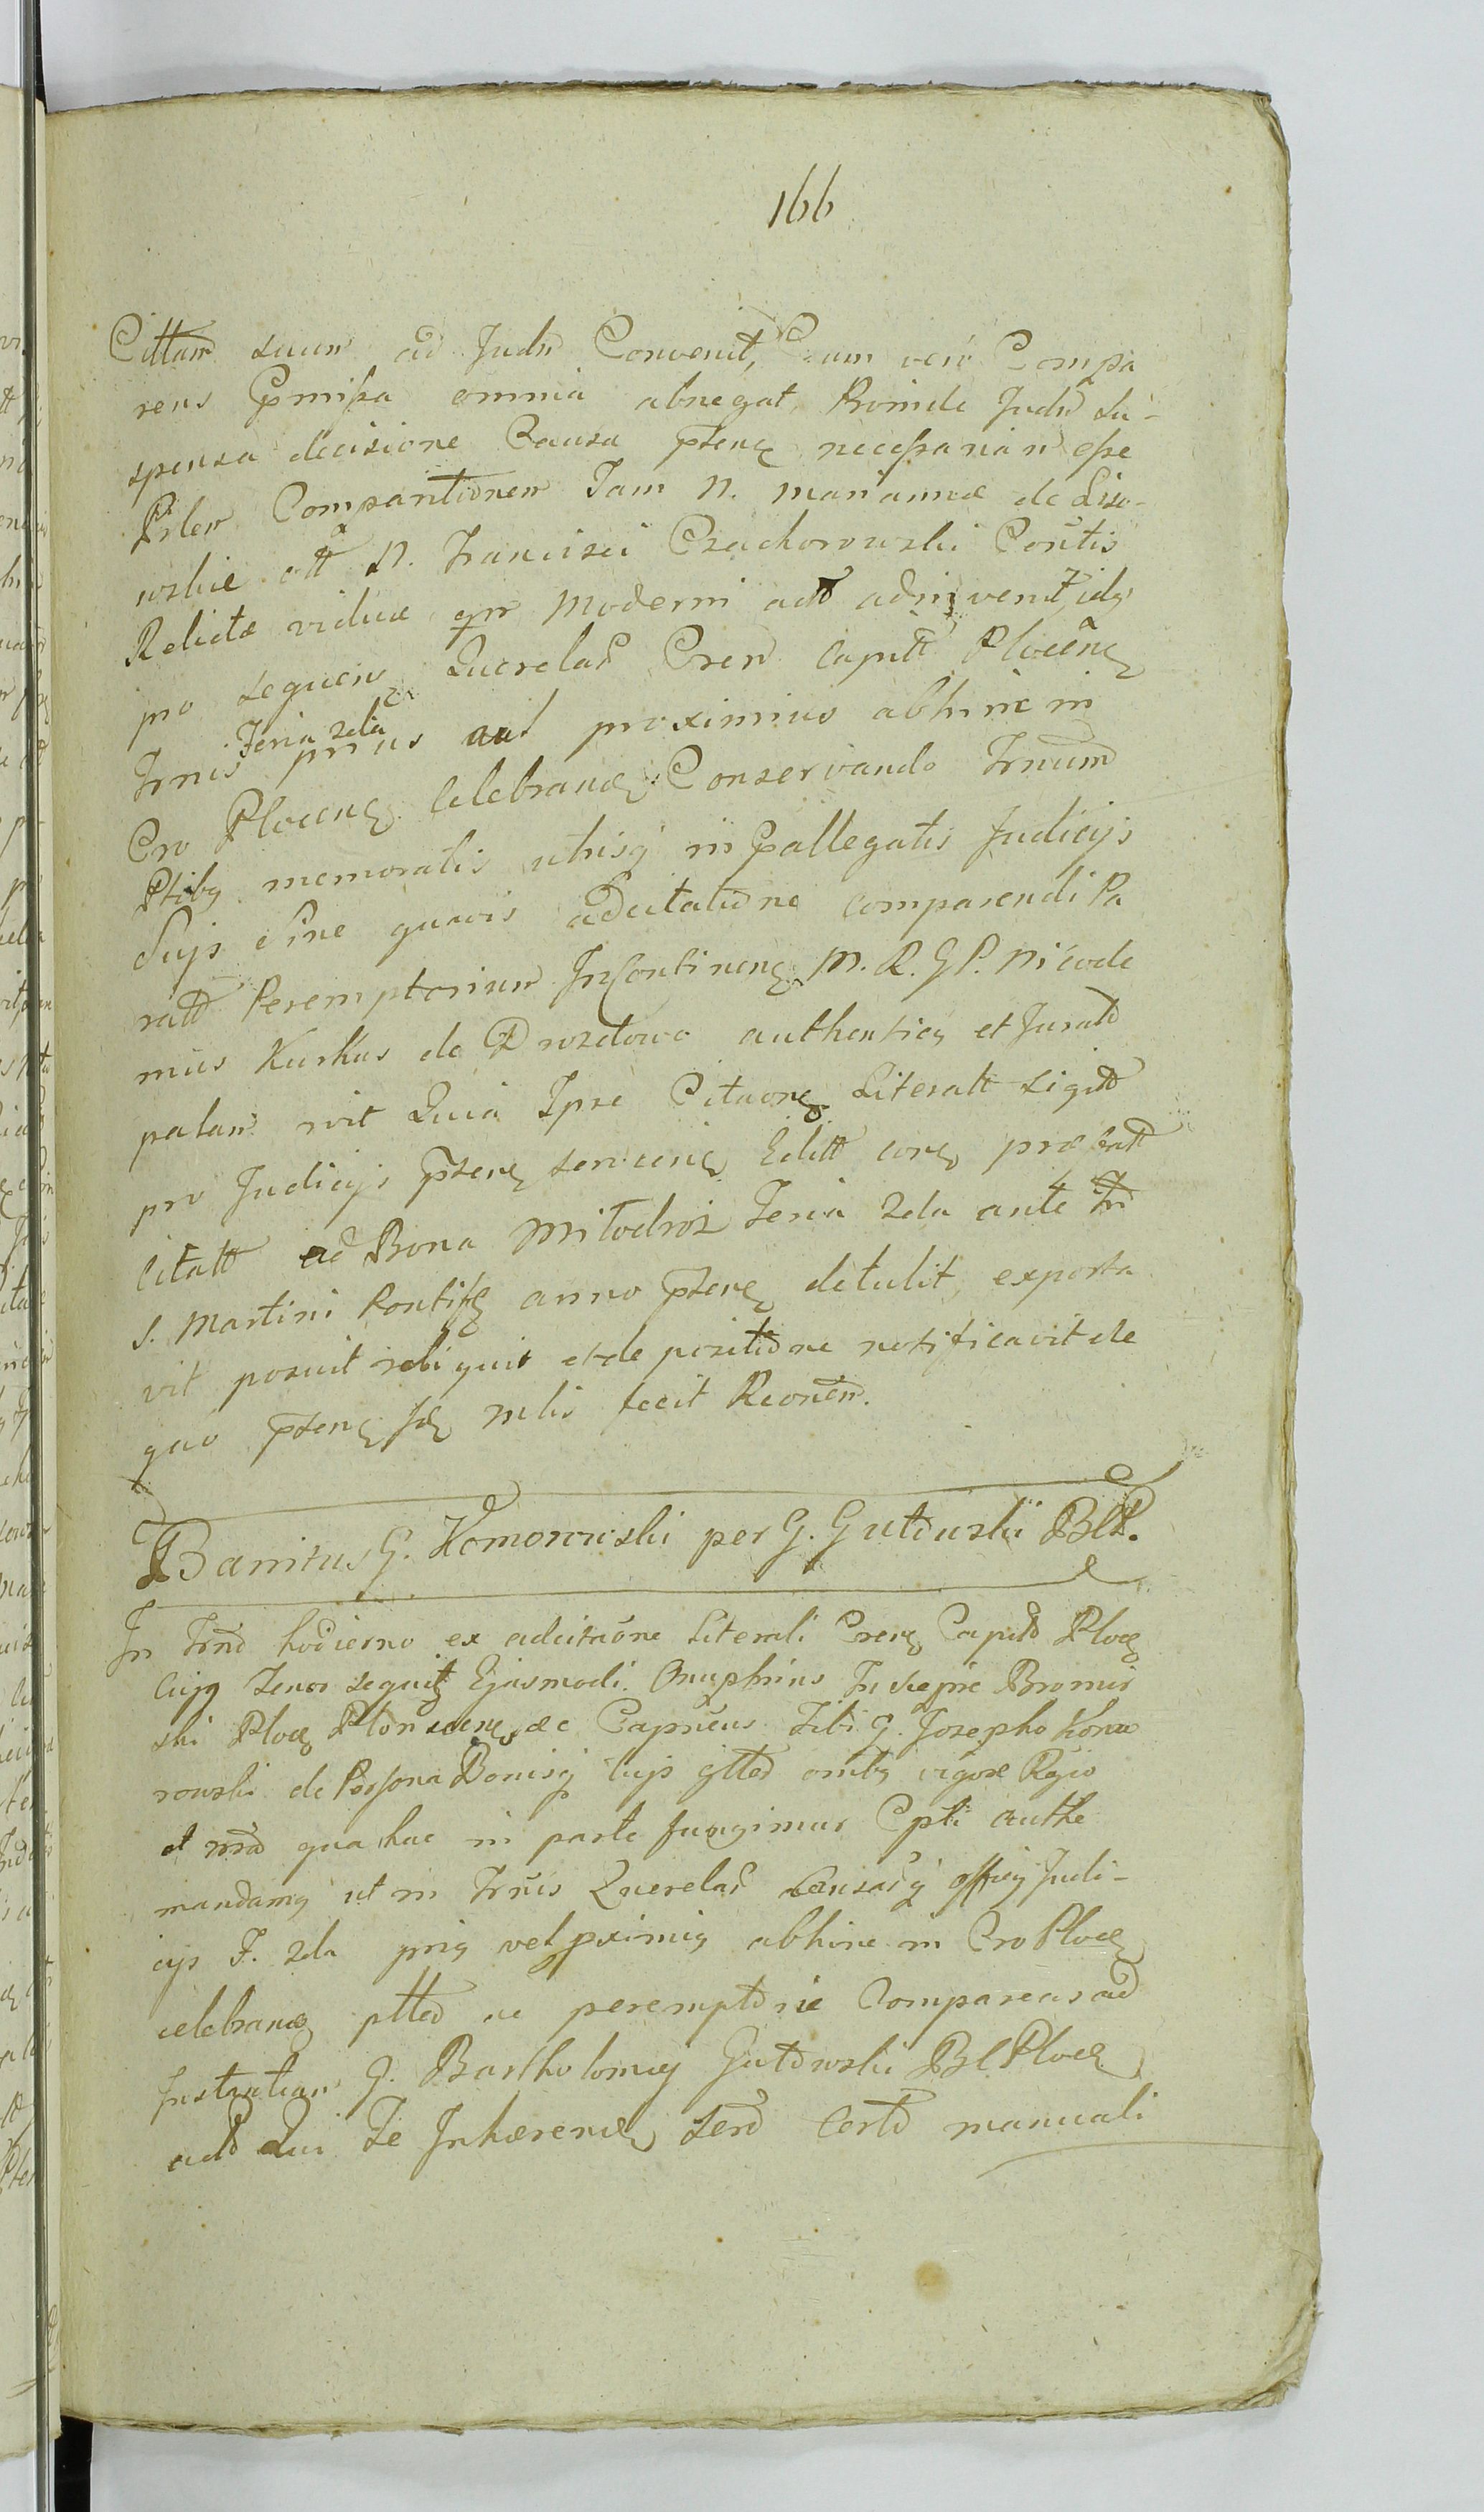 166
Cittam suum ad Judm Convenit, Cum vero Compa
rens Pmissa omnia abnegat, Proinde Judm su-
spensa decisione Causæ pstens necessariam esse
Psslem Comparitionem Tam N. Mariannæ de Liso-
wskie ott N. Francisci Czachorowski Contis
Relictæ viduæ qm Moderni actt adinvenit, idq
pro sequen Querelar Cren Capitt Plocens
Trnis prius Feria 2da aut proximius abhinc in
Cro Plocens celebrand Conservando Trnum
Ptibq memoratis utrisq in Pallegatis Judicijs
Suis sine quavis adcitatione comparendi Pa
ratt Peremptorium Incontinens M. R. G P. Nicode
mus Kurkus de Drozdowo authentiq et Juratt
palam rvit Quia Ipse Citaons Literatt sigitt
pro Judicijs pstens serviens Editt cors præ
citatt ad Bona Miłodroż Feria 2da ante
S. Martini Pontifs anno pstens detulit, exporta
vit posuit reliquit et de positione notificavit de
quo pstens mlis fecit Reonem.
Banitus G. Komorowski per G. Gutowski BCP.
In Trno hodierno ex adcitaone Literali Crens Capitt Ploc
Cujq Tenor sequitr Ejusmodi. Onuphrius In Siepie Bromir
ski Ploc Płonscens ac Capneus Tibi G. Josepho Komo
rowski de Persona Bonisq tuis gltter omibq vigore Regio
et nra qua hac in parte fungimur Cpti autte
mandamq ut in Trnis Querelar Causarq officij Judi-
cijs F. 2da priq vel pximiq abhinc in Cro Ploc
celebrand pltter ac peremptorie Compareas ad
Instantiam G. Bartholomej Gutowski BC Ploc
actt Qui Te Inhærend Certo manuali